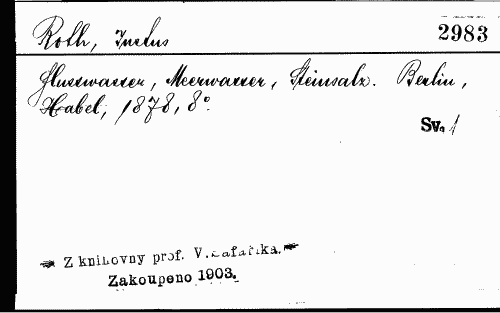 Roth, Justus
2983
Flusswasser, Meerwasser, Steinsalz. Berlin,
Habel, 1878, 8°.
Sv. 1
Z knihovny prof. V. Šafaříka.
Zakoupeno 1903.